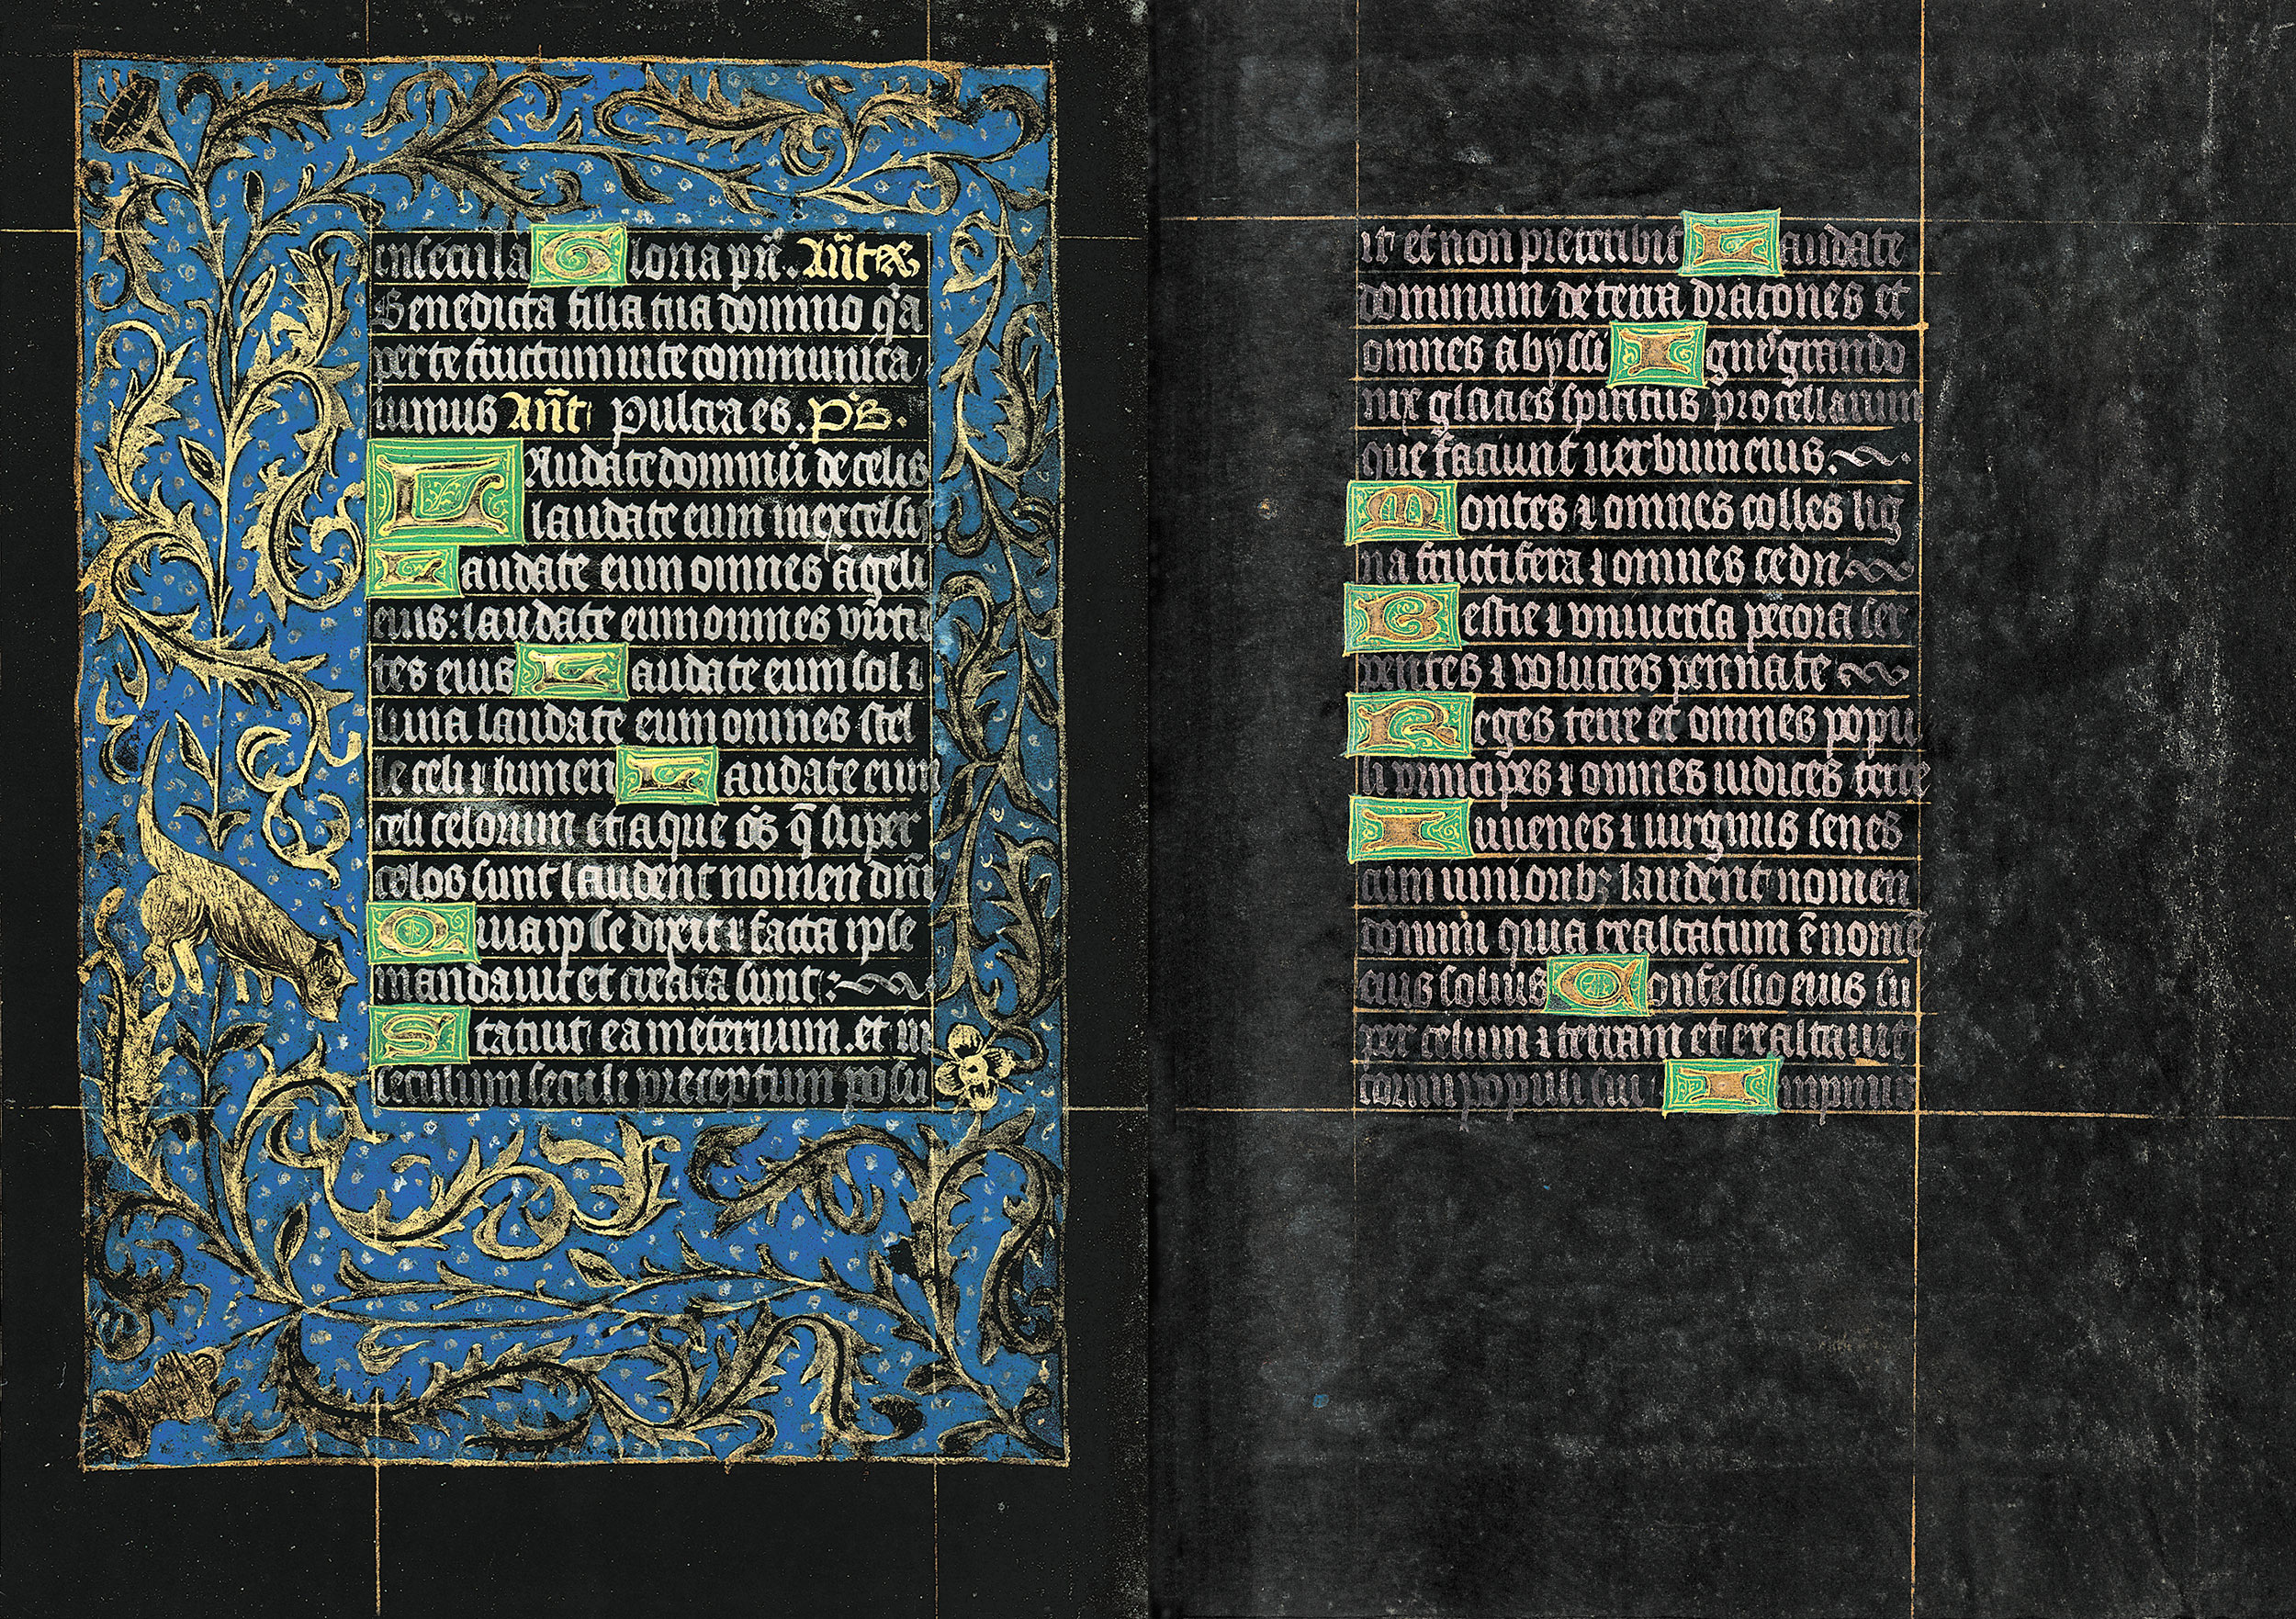 ensecula Gloria pr̄i. Ant̄
Benedicta filia tua domino q̄a
per te fructum uite communica
uimus Ant̄ Pulcra es. Ps.
Laudate dominū de celis
laudate eum inexcelsis
Laudate eum omnes āgeli
eius: laudate eum omnes virtu
tes eius Laudate eum sol ⁊
luna laudate eum omnes stel
le celi ⁊ lumen Laudate eum
celi celorum et aque ōs q̄ super
celos sunt laudent nomen dn̄i
Quia ipse dixit ⁊ facta ipse
mandauit et creata sunt:
Statuit ea ineternum. et in
seculum seculi preceptum posu
it et non preteribit Laudate
dominum de terra dracones et
omnes abyssi Ignis grando
nix glacies spiritus procellarum
que faciunt uerbum eius.
Montes ⁊ omnes colles lig
na fructifera ⁊ omnes cedri
Bestie ⁊ vniuersa pecora ser
pentes ⁊ volucres pennate
Reges terre et omnes popu
li principes ⁊ omnes iudices terre
Iuuenes ⁊ uirgines senes
cum iunioribꝫ laudent nomen
domini quia exaltatum ē nomē
eius solius Confessio eius su
per celum ⁊ terram et exaltauit
cornu populi sui Impnus